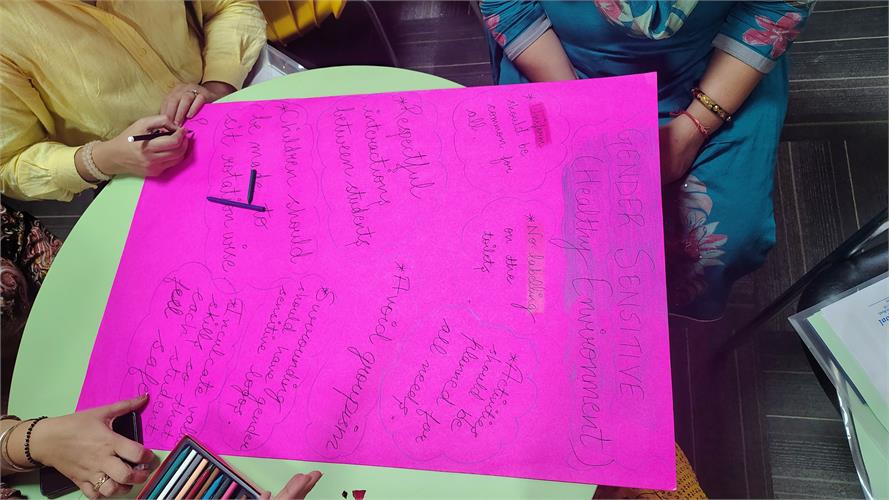 GENDER SENSITIVE
(Healthy Environment)
* Uniform
should be
common for
all
* No labelling
on the
toilets
* Activities
should be
planned for
all needs.
* Respectful
interactions
between students
* Avoid groupism
* Children should
be made to
sit rotation wise
* Surrounding
should have gender
sensitive logos.
* Inculcate
skills so that
each student
feel safe